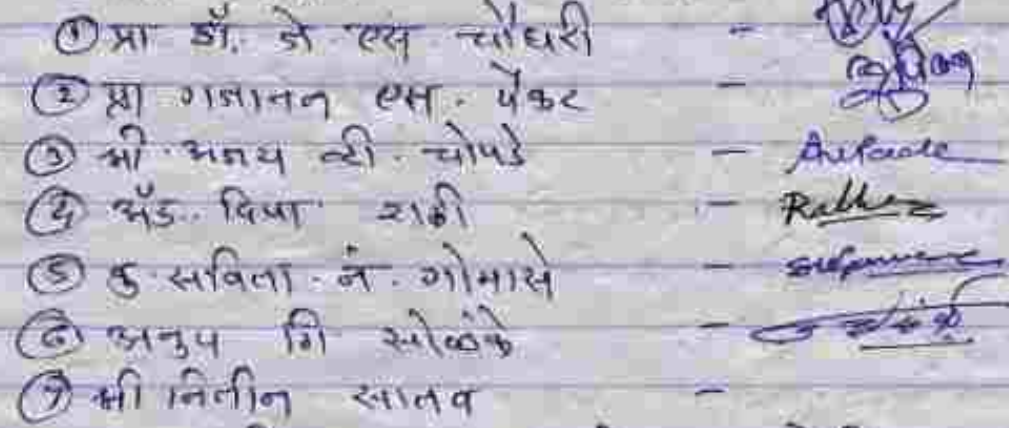 ① प्रा डॉ. जे एस चौधरी -
② प्रा गजानन एस. पेंकट -
③ श्री. अजय व्ही. चोपडे -
④ अ‍ॅड.. दिपा राठी - Rathi
⑤ कु. सविता. नं. गोमासे -
⑥ अनुप गि सोळंके -
⑦ श्री नितीन सातव -